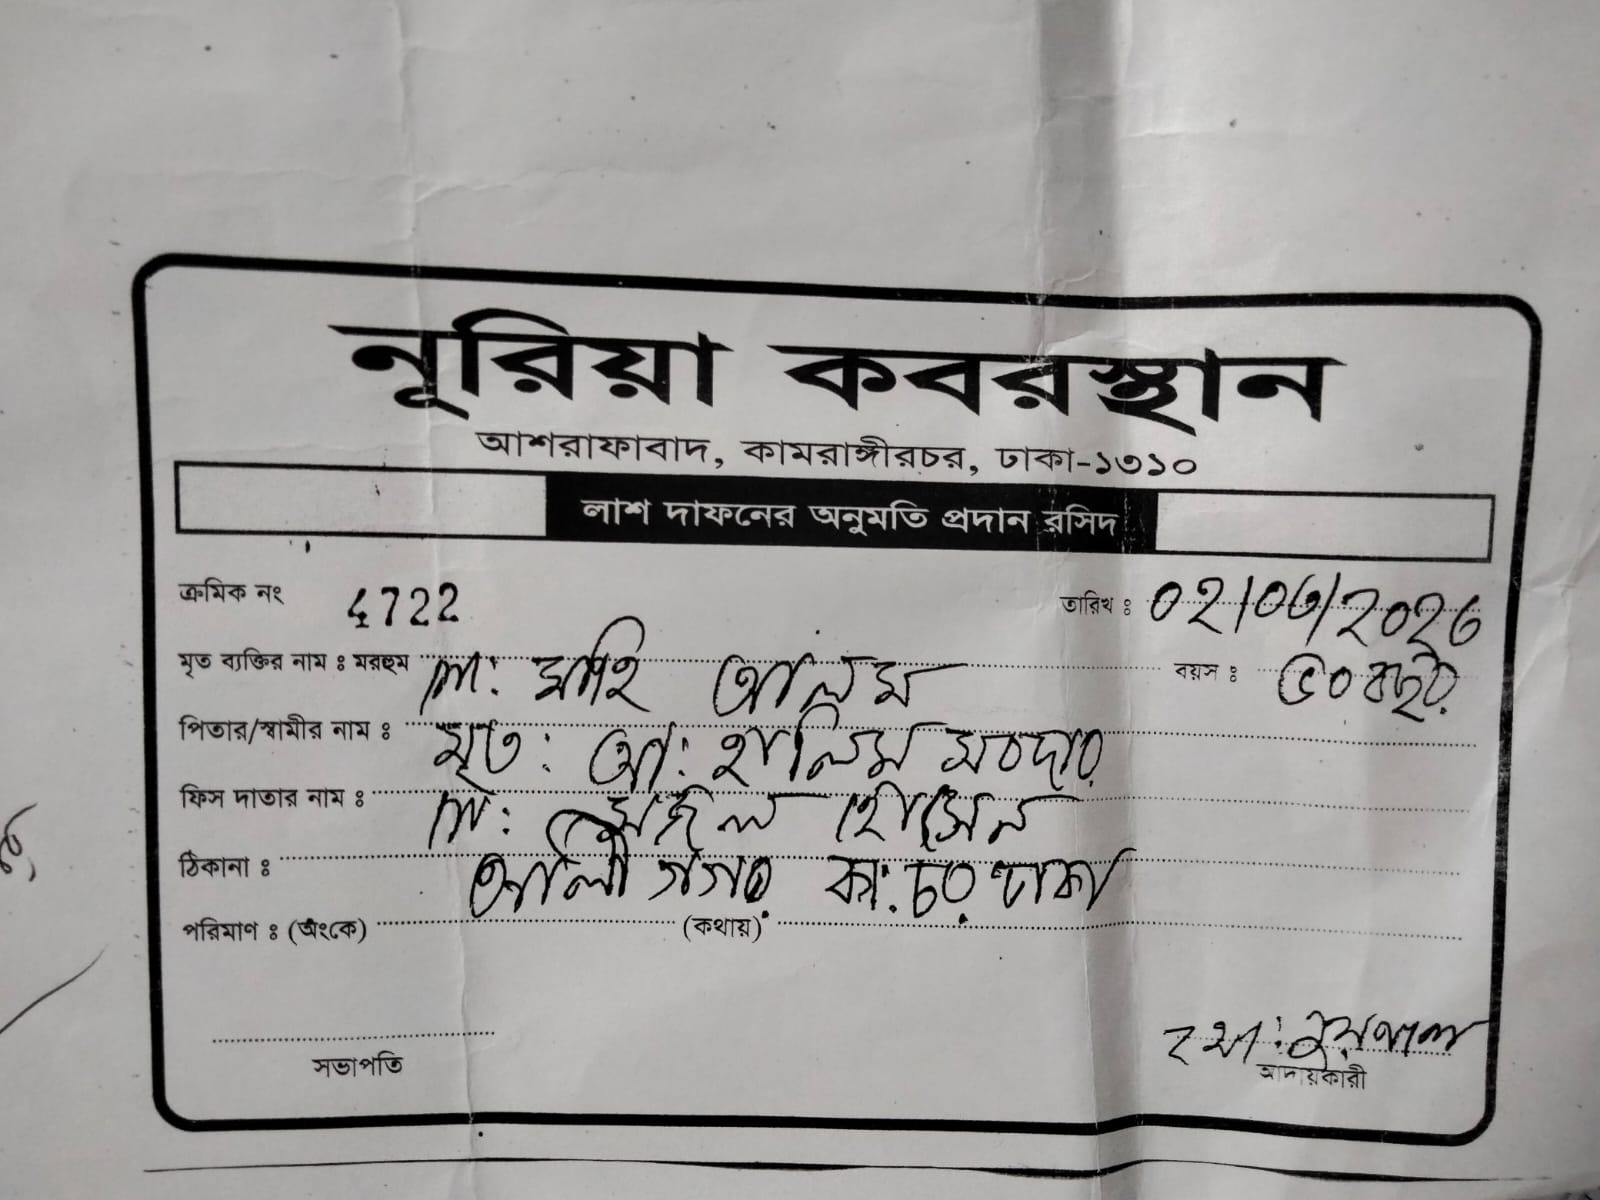 নূরিয়া কবরস্থান
আশরাফাবাদ, কামরাঙ্গীরচর, ঢাকা-১৩১০
লাশ দাফনের অনুমতি প্রদান রসিদ
ক্রমিক নং 4722 তারিখ ঃ 02/03/2026
মৃত ব্যক্তির নাম ঃ মরহুম মো: শাহ আলম বয়স ঃ ৬০ বছর
পিতার/স্বামীর নাম ঃ মৃত: আ: হালিম সরদার
ফিস দাতার নাম ঃ মো: হোসেন
ঠিকানা ঃ আলী নগর কা: চর ঢাকা
পরিমাণ ঃ (অংকে) (কথায়)
সভাপতি
আদায়কারী